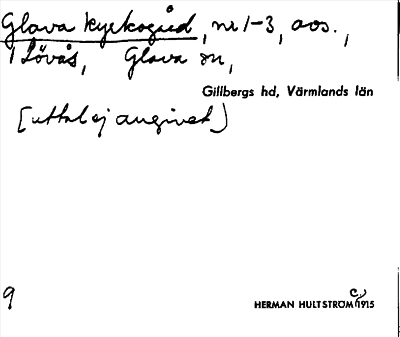 Glava kyrkogård, nr 1-3, avs.,
i Lövås, Glava sn,
Gillbergs hd, Värmlands län
[uttal ej angivet]
9
HERMAN HULTSTRÖM c. 1915